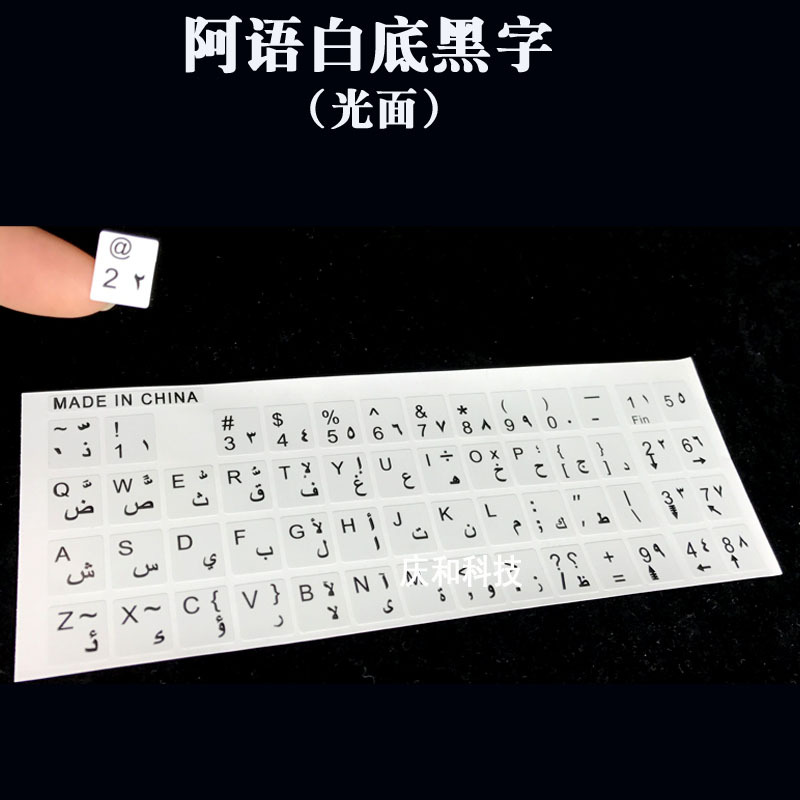 阿语白底黑字
（光面）
@
2 ٢
MADE IN CHINA
~ ّ ذ
! 1 ١
# 3 ٣
$ 4 ٤
% 5 ٥
^ 6 ٦
& 7 ٧
* 8 ٨
( 9 ٩
) 0 ٠
— -
1 ١ Fin
5 ٥
Q َ ض
W ً ص
E ُ ث
R ٌ ق
T لإ ف
Y إ غ
U ع
I ÷ ه
O x خ
P ؛ ح
{ [ ج
} ] د
2 ٢ ↓
6 ٦ →
A ش
S س
D ي
F ب
G لأ ل
H أ ا
J ت
K ن
L م
: ; ك
" ' ط
| \
3 ٣
7 ٧ ↖
Z ~ ئ
X ~ ء
C { ؤ
V } ر
B لآ لا
N آ ى
庆和科技
ة
, و
. ز
? ؟ / ظ
+ =
9 ٩
4 ٤ ←
8 ٨ ↑